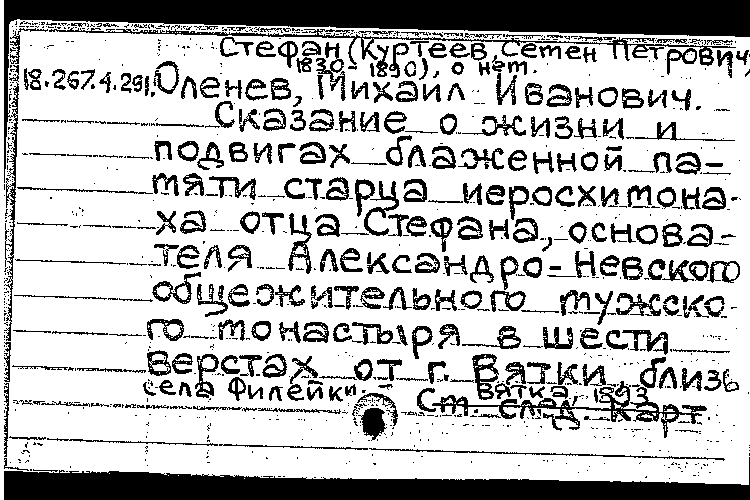 Стефан (Куртеев, Семен Петрович,
1830-1890), о нем.
18.267.4.291. Оленев, Михаил Иванович.
Сказание о жизни и
подвигах блаженной па-
мяти старца иеросхимона-
ха отца Стефана, основа-
теля Александро-Невского
общежительного мужско-
го монастыря в шести
верстах от г. Вятки, близь
села Филейки. –
Вятка, 1893
См. след. карт.